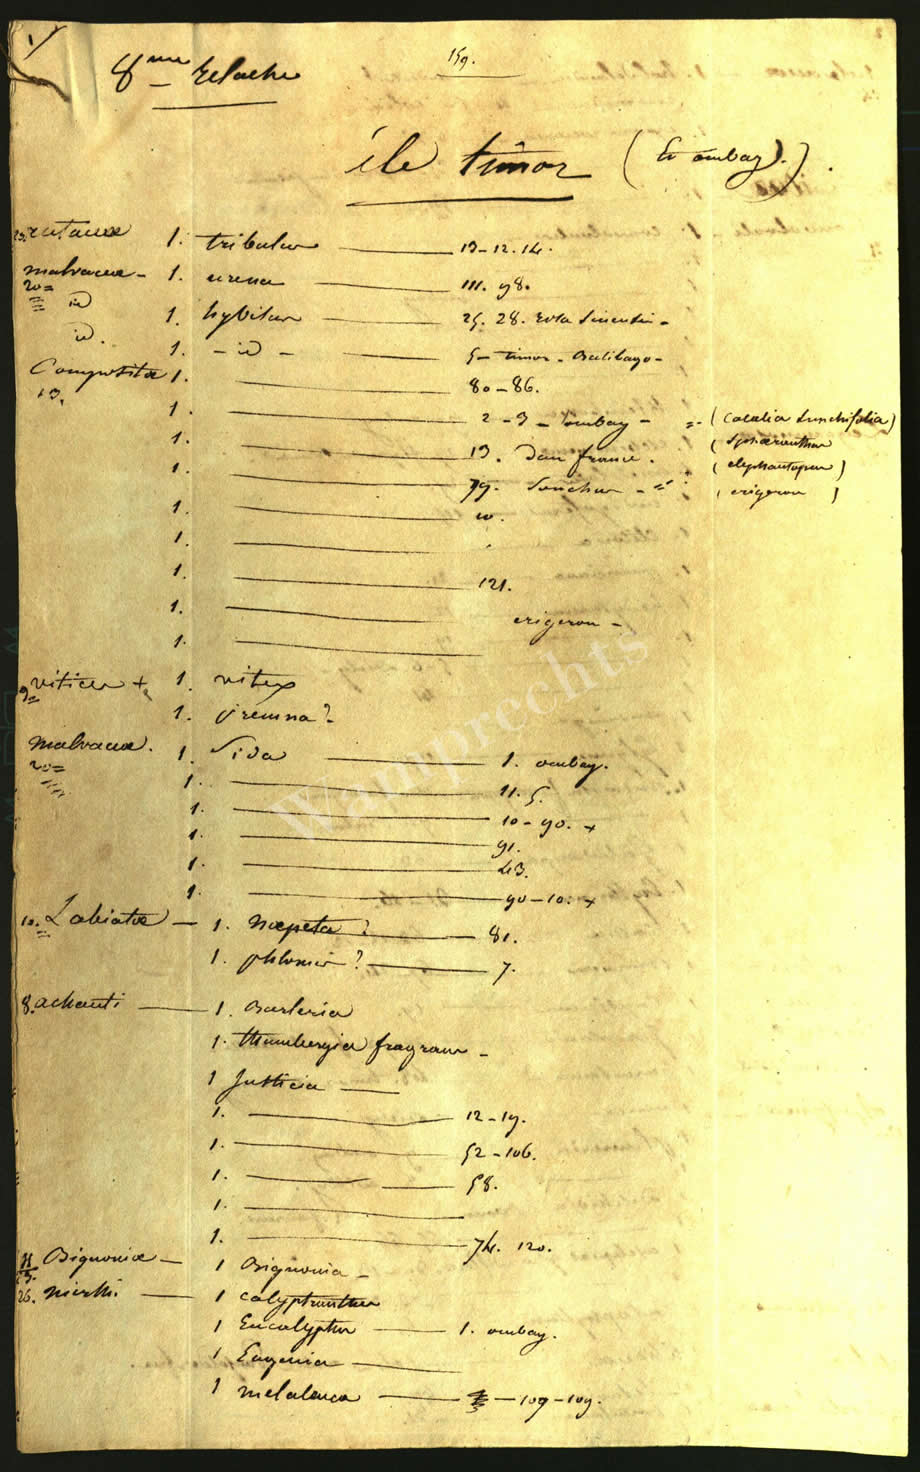 1
159.
8me Relache
île timor (Et ombay).
rutaceæ 1. tribulus 13-12.14.
malvaceæ - 1. urena 111. 98.
20=
id 1. hybiscus 25. 28. rosa sinensis -
id. 1. - id - 5- timor - Balibago -
Compositæ 1. 80-86.
13.
1. 2-3- ombay - =- (Cacalia Sonchifolia)
1. 13. Dan france. (Sphæranthus
1. 79. Sonchus - (elephantopus)
1. 10. (erigeron)
1.
1. 121.
1. erigeron -
1.
9 viticeæ + 1. vitex
1. premna?
malvaceæ. 1. Sida 1. ombay.
20=
1. 11. 5.
1. 10-90. +
1. 91.
1. 43.
1. 90-10. +
10. Labiatæ - 1. Nœpeta? 81.
1. phlomis? 7.
8. achanti 1. Barleria
1. thumbergia fragrans -
1 Justicia
1. 12-19.
1. 52-106.
1. 58.
1.
1. 74. 120.
11 Bignoniæ - 1 Bignonia -
26. mirthi. 1 calypthranthus
1 Eucalyptus 1. ombay.
1 Eugenia
1 melaleuca - 109-109.
Wamprechts